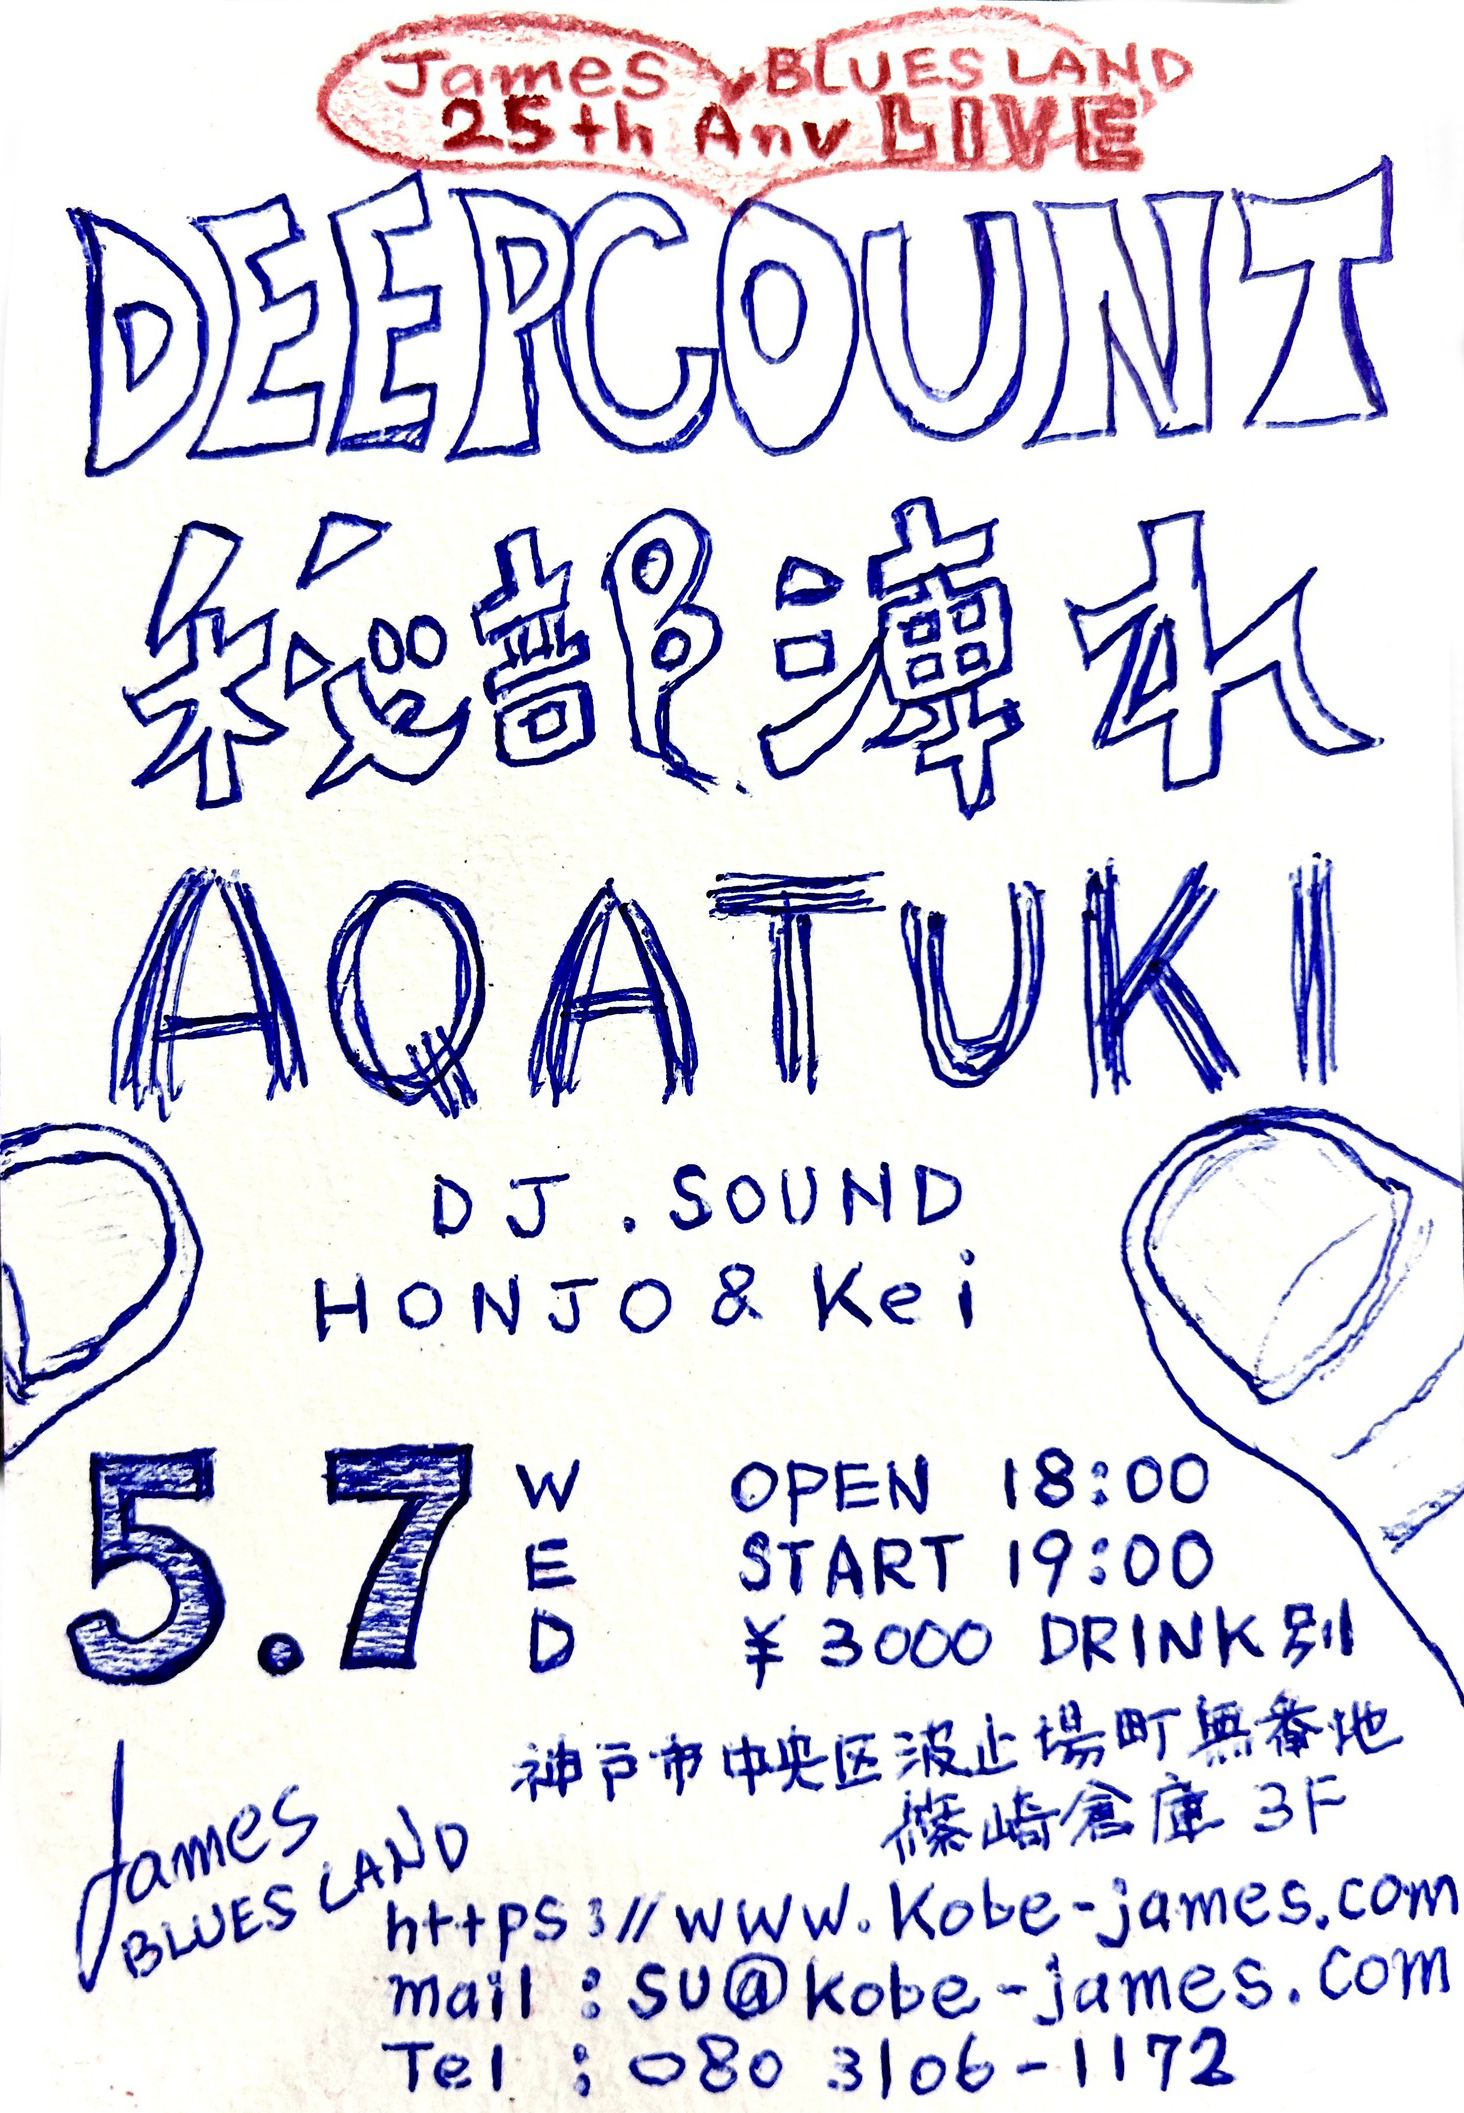 James BLUES LAND
25th Anv LIVE
DEEPCOUNT
AQATUKI
DJ . SOUND
HONJO & Kei
5.7 WED
OPEN 18:00
START 19:00
¥3000 DRINK別
神戸市中央区波止場町無番地
篠崎倉庫 3F
James
BLUES LAND
https://www.Kobe-james.com
mail : su@kobe-james.com
Tel : 080 3106-1172